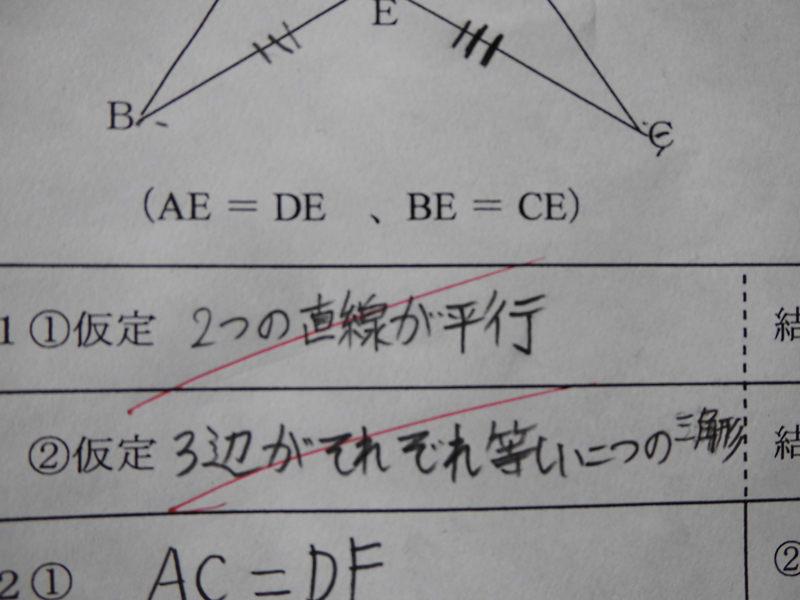 E
B C
（AE = DE 、BE = CE）
1 ①仮定 2つの直線が平行 結
②仮定 3辺がそれぞれ等しい二つの三角形 結
2 ① AC = DF ②